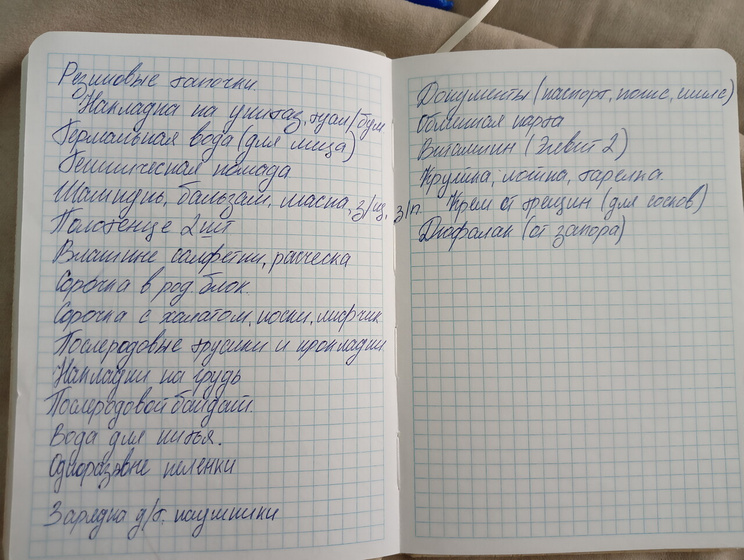 Резиновые тапочки.
Накладка на унитаз, туал/бум
Термальная вода (для лица)
Гигиеническая помада
Шампунь, бальзам, маска, з/щ, з/п.
Полотенце 2шт
Влажные салфетки, расческа
Сорочка в род. блок.
Сорочка с халатом, носки, лифчик
Послеродовые трусики и прокладки
Накладки на грудь
Послеродовой бандаж.
Вода для питья.
Одноразовые пеленки
Зарядка д/т. наушники
Документы (паспорт, полис, снилс)
Обменная карта
Витамин (Элевит 2)
Кружка, ложка, тарелка
Крем от трещин (для сосков)
Дюфалак (от запора)